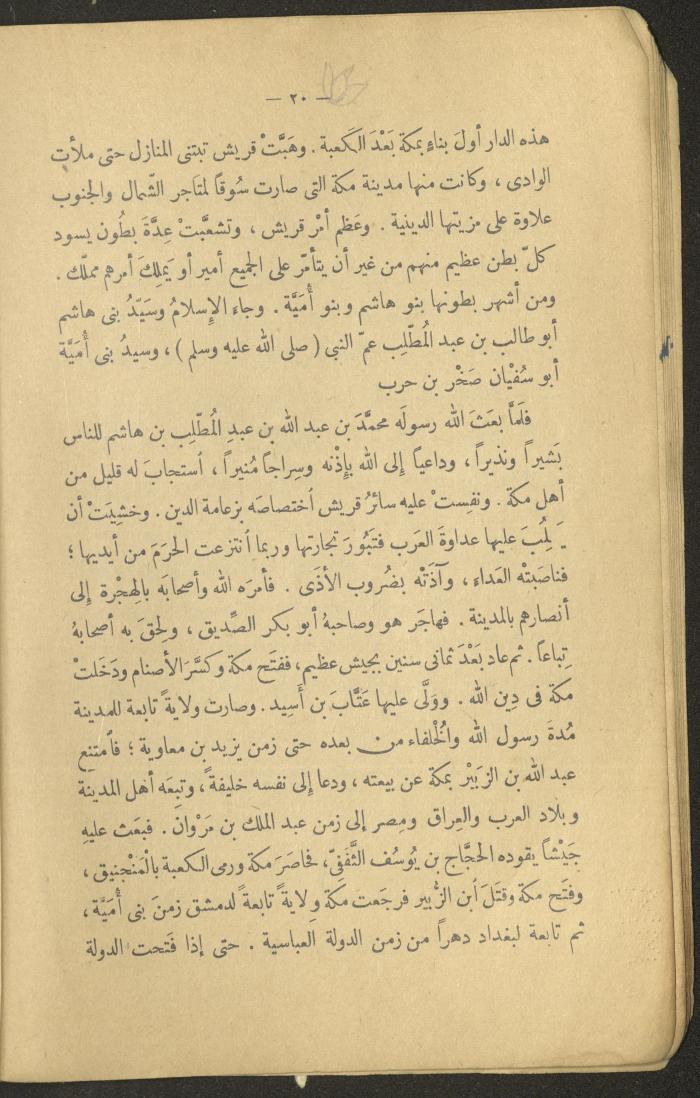 — ٢٠ —
هذه الدار أولَ بناءٍ بمكة بَعْدَ الكَعبة . وهَبَّتْ قريش تبتنى المنازل حتى ملأت
الوادى ، وكانت منها مدينة مكة التى صارت سُوقاً لمتَاجر الشّمال والجنوب
علاوة على مزيتها الدينية . وعَظم أمْر قريش ، وتشعَّبتْ عِدَّةَ بطُون يسود
كلّ بطن عظيم منهم من غير أن يتأمّر على الجميع أمير أو يَملِكَ أمرهم مملّك .
ومن أشهر بطونها بنو هاشم وبنو أُمَيَّة . وجاء الإِسلامُ وسَيّدُ بنى هاشم
أبو طالب بن عبد المُطَّلِب عمّ النبي ( صلى الله عليه وسلم ) ، وسيدُ بنى أُمَيَّة
أبو سُفْيان صَخْر بن حرب
فلَمَّا بعَثَ الله رسولَه محمَّدَ بن عبد الله بن عبدِ المُطّلِب بن هاشم للناس
بَشيراً ونذيراً ، وداعياً إلى الله بإِذْنه وسِراجاً مُنيراً ، اُستجابَ له قليل من
أهل مكة . ونفِستْ عليه سائرُ قريش اُختصاصَه بزعامة الدين . وخشِيَتْ أن
يَلِبَ عليها عداوةَ العَرب فتَبُورَ تجارتها وربما اُنتزعت الحرَمَ من أيديها ؛
فناصَبتْه العَداء ، وآذَتْه بضُروب الأذَى . فأمرَه الله وأصحابَه بالهِجْرة إلى
أنصارهم بالمدينة . فهاجَر هو وصاحبهُ أبو بكر الصِّديق ، ولحِقَ به أصحابهُ
تِباعاً . ثم عاد بَعْدَ ثمانى سنين بجيش عظيم، ففتَح مكة وكسَّرَ الأصنام ودَخَلتْ
مكة فى دِين الله . ووَلَّى عليها عَتَّابَ بن أَسِيد . وصارت ولايةً تابعة للمدينة
مُدةَ رسول الله والخُلفاء من بعده حتى زمن يزيد بن معاوية ؛ فاُمتنع
عبد الله بن الزبَيْر بمكة عن بيعته ، ودعا إلى نفسه خليفةً ، وتبِعَه أهل المدينة
وبلاد العرب والعِراق ومِصر إلى زمن عبد الملك بن مَرْوانَ . فبعَث عليهِ
جَيْشاً يقوده الحجَّاج بن يُوسُف الثَّقفىّ، فحاصَرَ مكة ورمى الكعبة بالْمَنْجنِيق ،
وفتَح مكة وقتَلَ اُبن الزُّبير فرجَعت مكة وِلايةً تابعةً لدمشق زمنَ بنى أُمَيَّة ،
ثم تابعة لبغداد دهراً من زمن الدولة العباسية . حتى إذا فتَحت الدولة